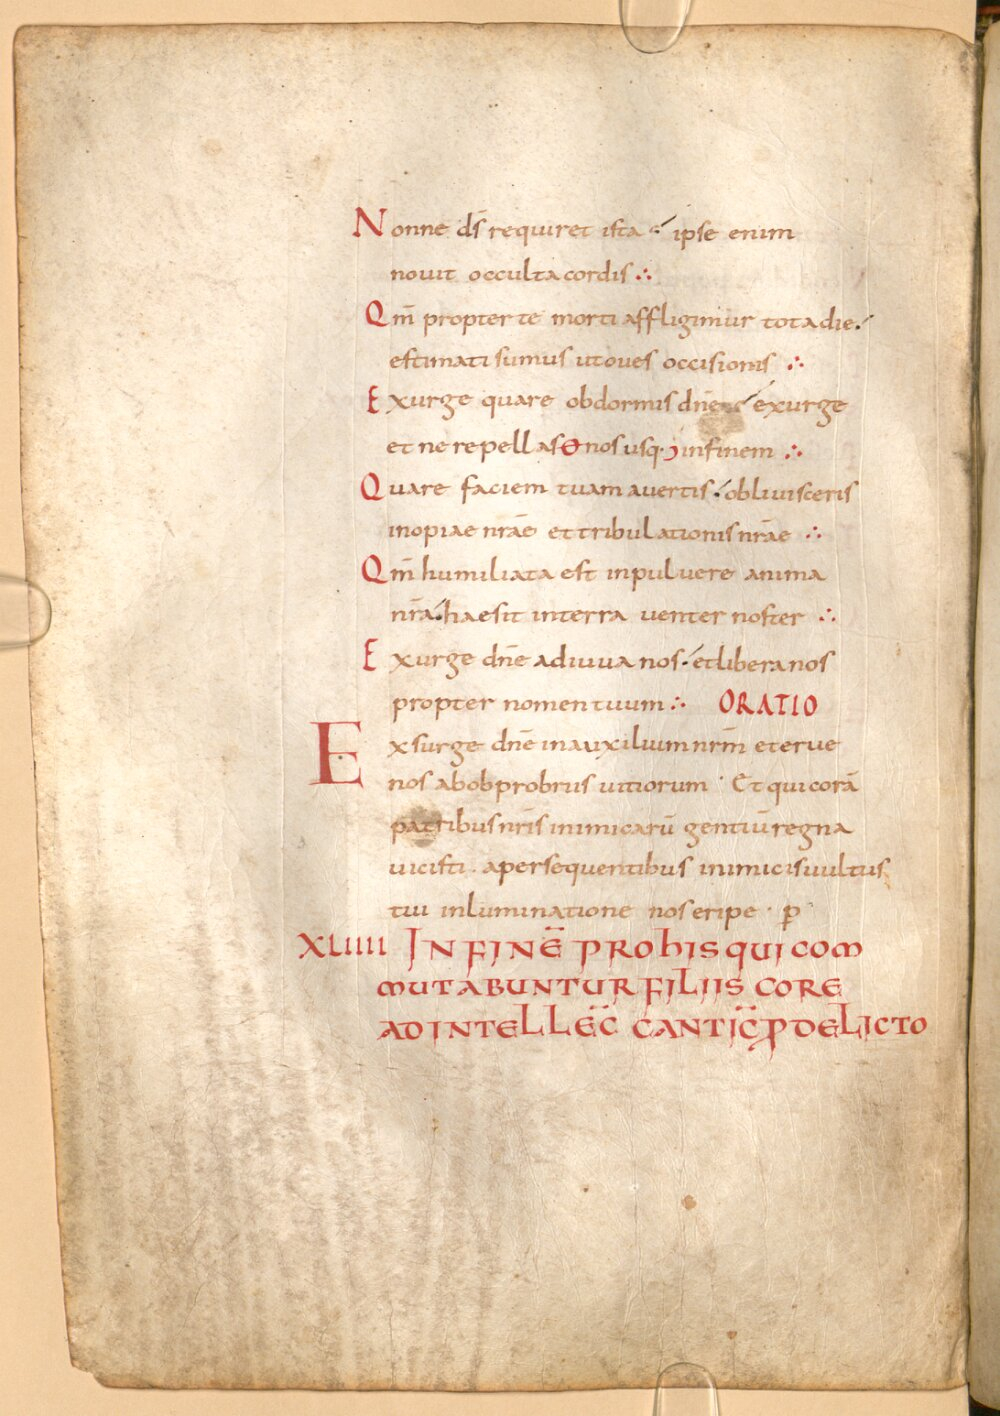 Nonne dš requiret ista ipse enim
nouit occulta cordis ∴
Qm̄ propter te morti affligimur tota die.
estimati sumus ut oues occisionis ∴
Exurge quare obdormis dn̄e exurge
et ne repellas nos usq· infinem ∴
Quare faciem tuam auertis. obliuisceris
inopiae nrāe et tribulationis nrāe ∴
Qm̄ humiliata est in puluere anima
nrā. haesit in terra uenter noster ∴
Exurge dn̄e adiuua nos. et libera nos
propter nomen tuum ∴ ORATIO
Exsurge dn̄e in auxilium nrm̄ et erue
nos ab obprobriis uitiorum · Et qui corā
patribus nrīs inimicarū gentiū regna
uicisti . a persequentibus inimicis uultus
tui inluminatione nos eripe · p
XLIIII IN FINE PRO HIS QUI COM
MUTABUNTUR FILIIS CORE
AD INTELLEC̄ CANTIC̄ P DELICTO